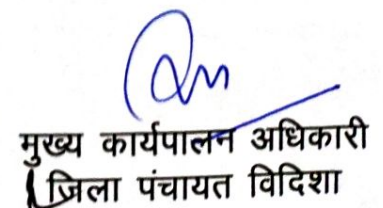 मुख्य कार्यपालन अधिकारी
जिला पंचायत विदिशा